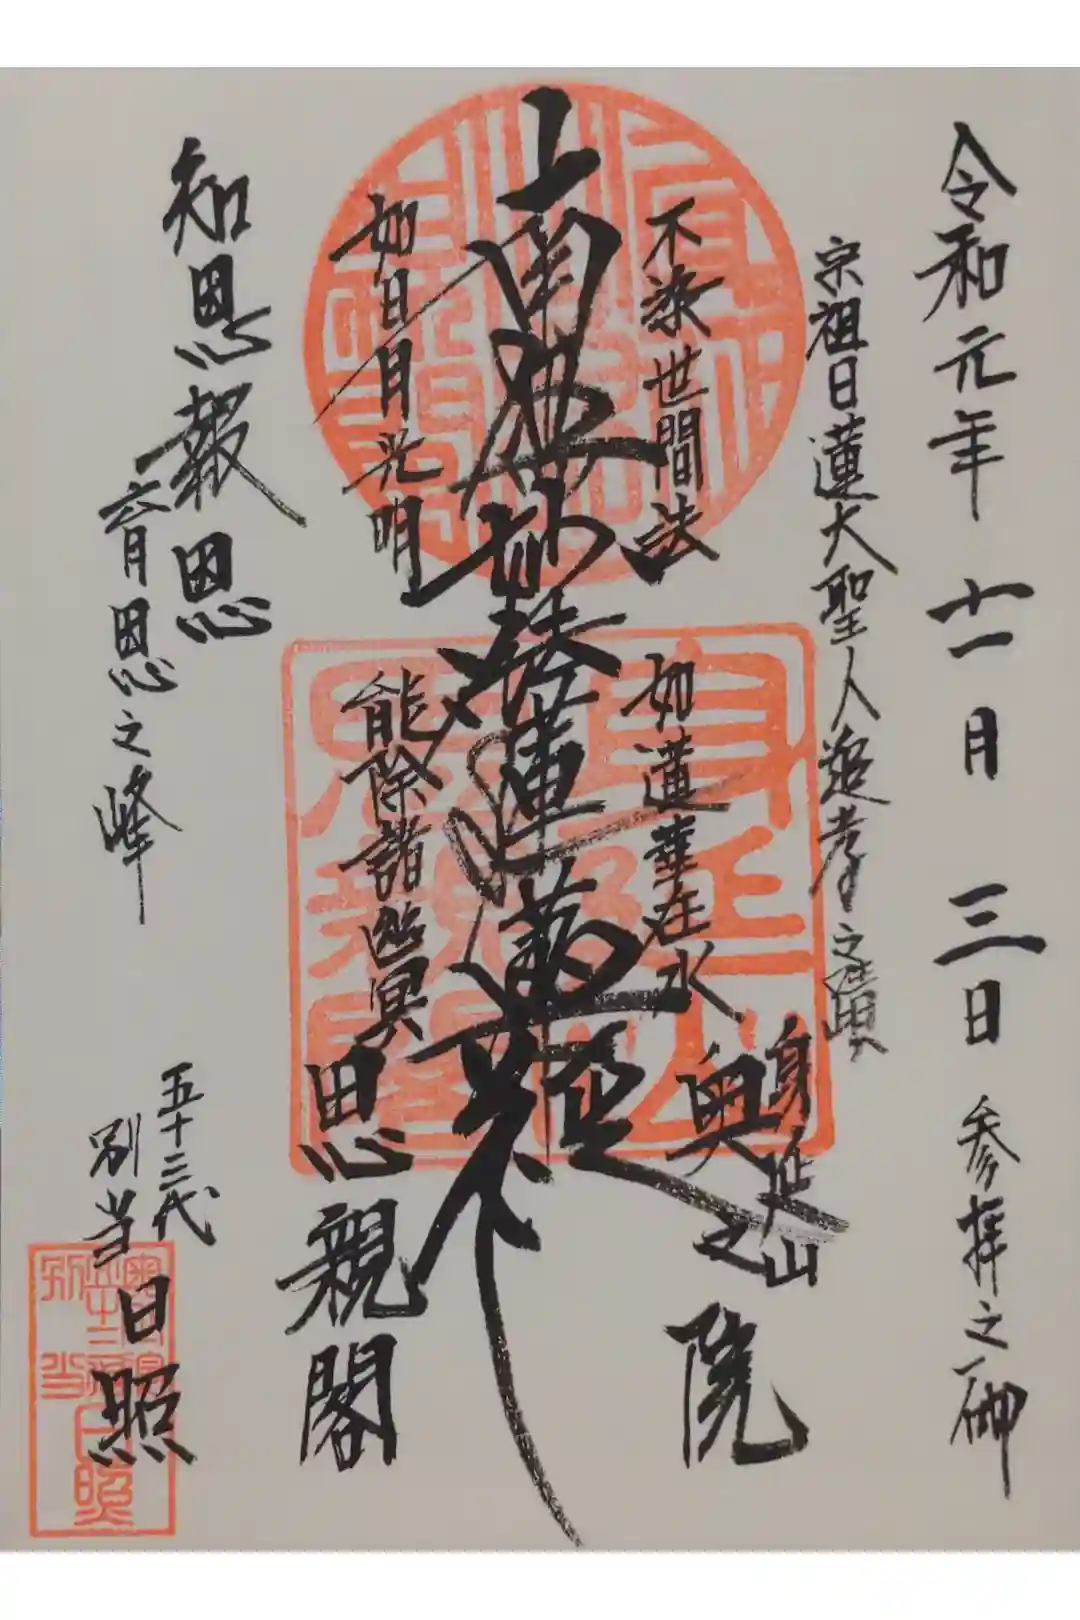 令和元年十一月三日 参拝之砌
宗祖日蓮大聖人追孝之霊場
身延山
奥之院
不染世間法 如蓮華在水
南無妙法蓮華経
如日月光明 能除諸幽冥
思親閣
知恩報恩
育恩之峰
五十三代
別当 日照